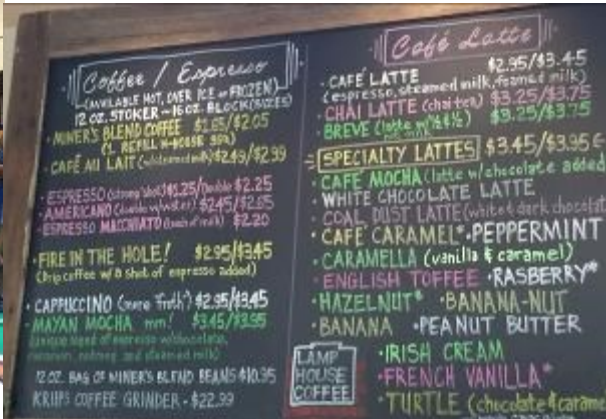 Coffee / Espresso
(AVAILABLE HOT, OVER ICE or FROZEN)
12 OZ. STOKER - 16 OZ. BLOCK (SIZES)
• MINER'S BLEND COFFEE $1.65/$2.05
(1 REFILL IN-HOUSE 95¢)
• CAFÉ AU LAIT (w/steamed milk) $2.49/$2.99
• ESPRESSO (strong 'shot') $1.25/Double $2.25
• AMERICANO (double w/water) $2.45/$2.65
• ESPRESSO MACCHIATO (touch of milk) $2.20
• FIRE IN THE HOLE! $2.95/$3.45
(Drip coffee w/ a shot of espresso added)
• CAPPUCCINO (more 'Froth') $2.95/$3.45
• MAYAN MOCHA mm! $3.45/$3.95
(unique blend of espresso w/chocolate,
cinnamon, nutmeg, and steamed milk)
12 OZ. BAG OF MINER'S BLEND BEANS $10.95
KRUPS COFFEE GRINDER - $22.99
Café Latte
• CAFÉ LATTE $2.95/$3.45
(espresso, steamed milk, foamed milk)
• CHAI LATTE (chai tea) $3.25/$3.75
• BREVE (latte w/ ½ & ½) $3.25/$3.75
SPECIALTY LATTES $3.45/$3.95
• CAFÉ MOCHA (latte w/chocolate added
• WHITE CHOCOLATE LATTE
• COAL DUST LATTE (white & dark chocolat
• CAFÉ CARAMEL* • PEPPERMINT
• CARAMELLA (vanilla & caramel)
• ENGLISH TOFFEE • RASBERRY*
• HAZELNUT* • BANANA-NUT
• BANANA • PEANUT BUTTER
• IRISH CREAM
• FRENCH VANILLA*
• TURTLE (chocolate & carame
LAMP
HOUSE
COFFEE